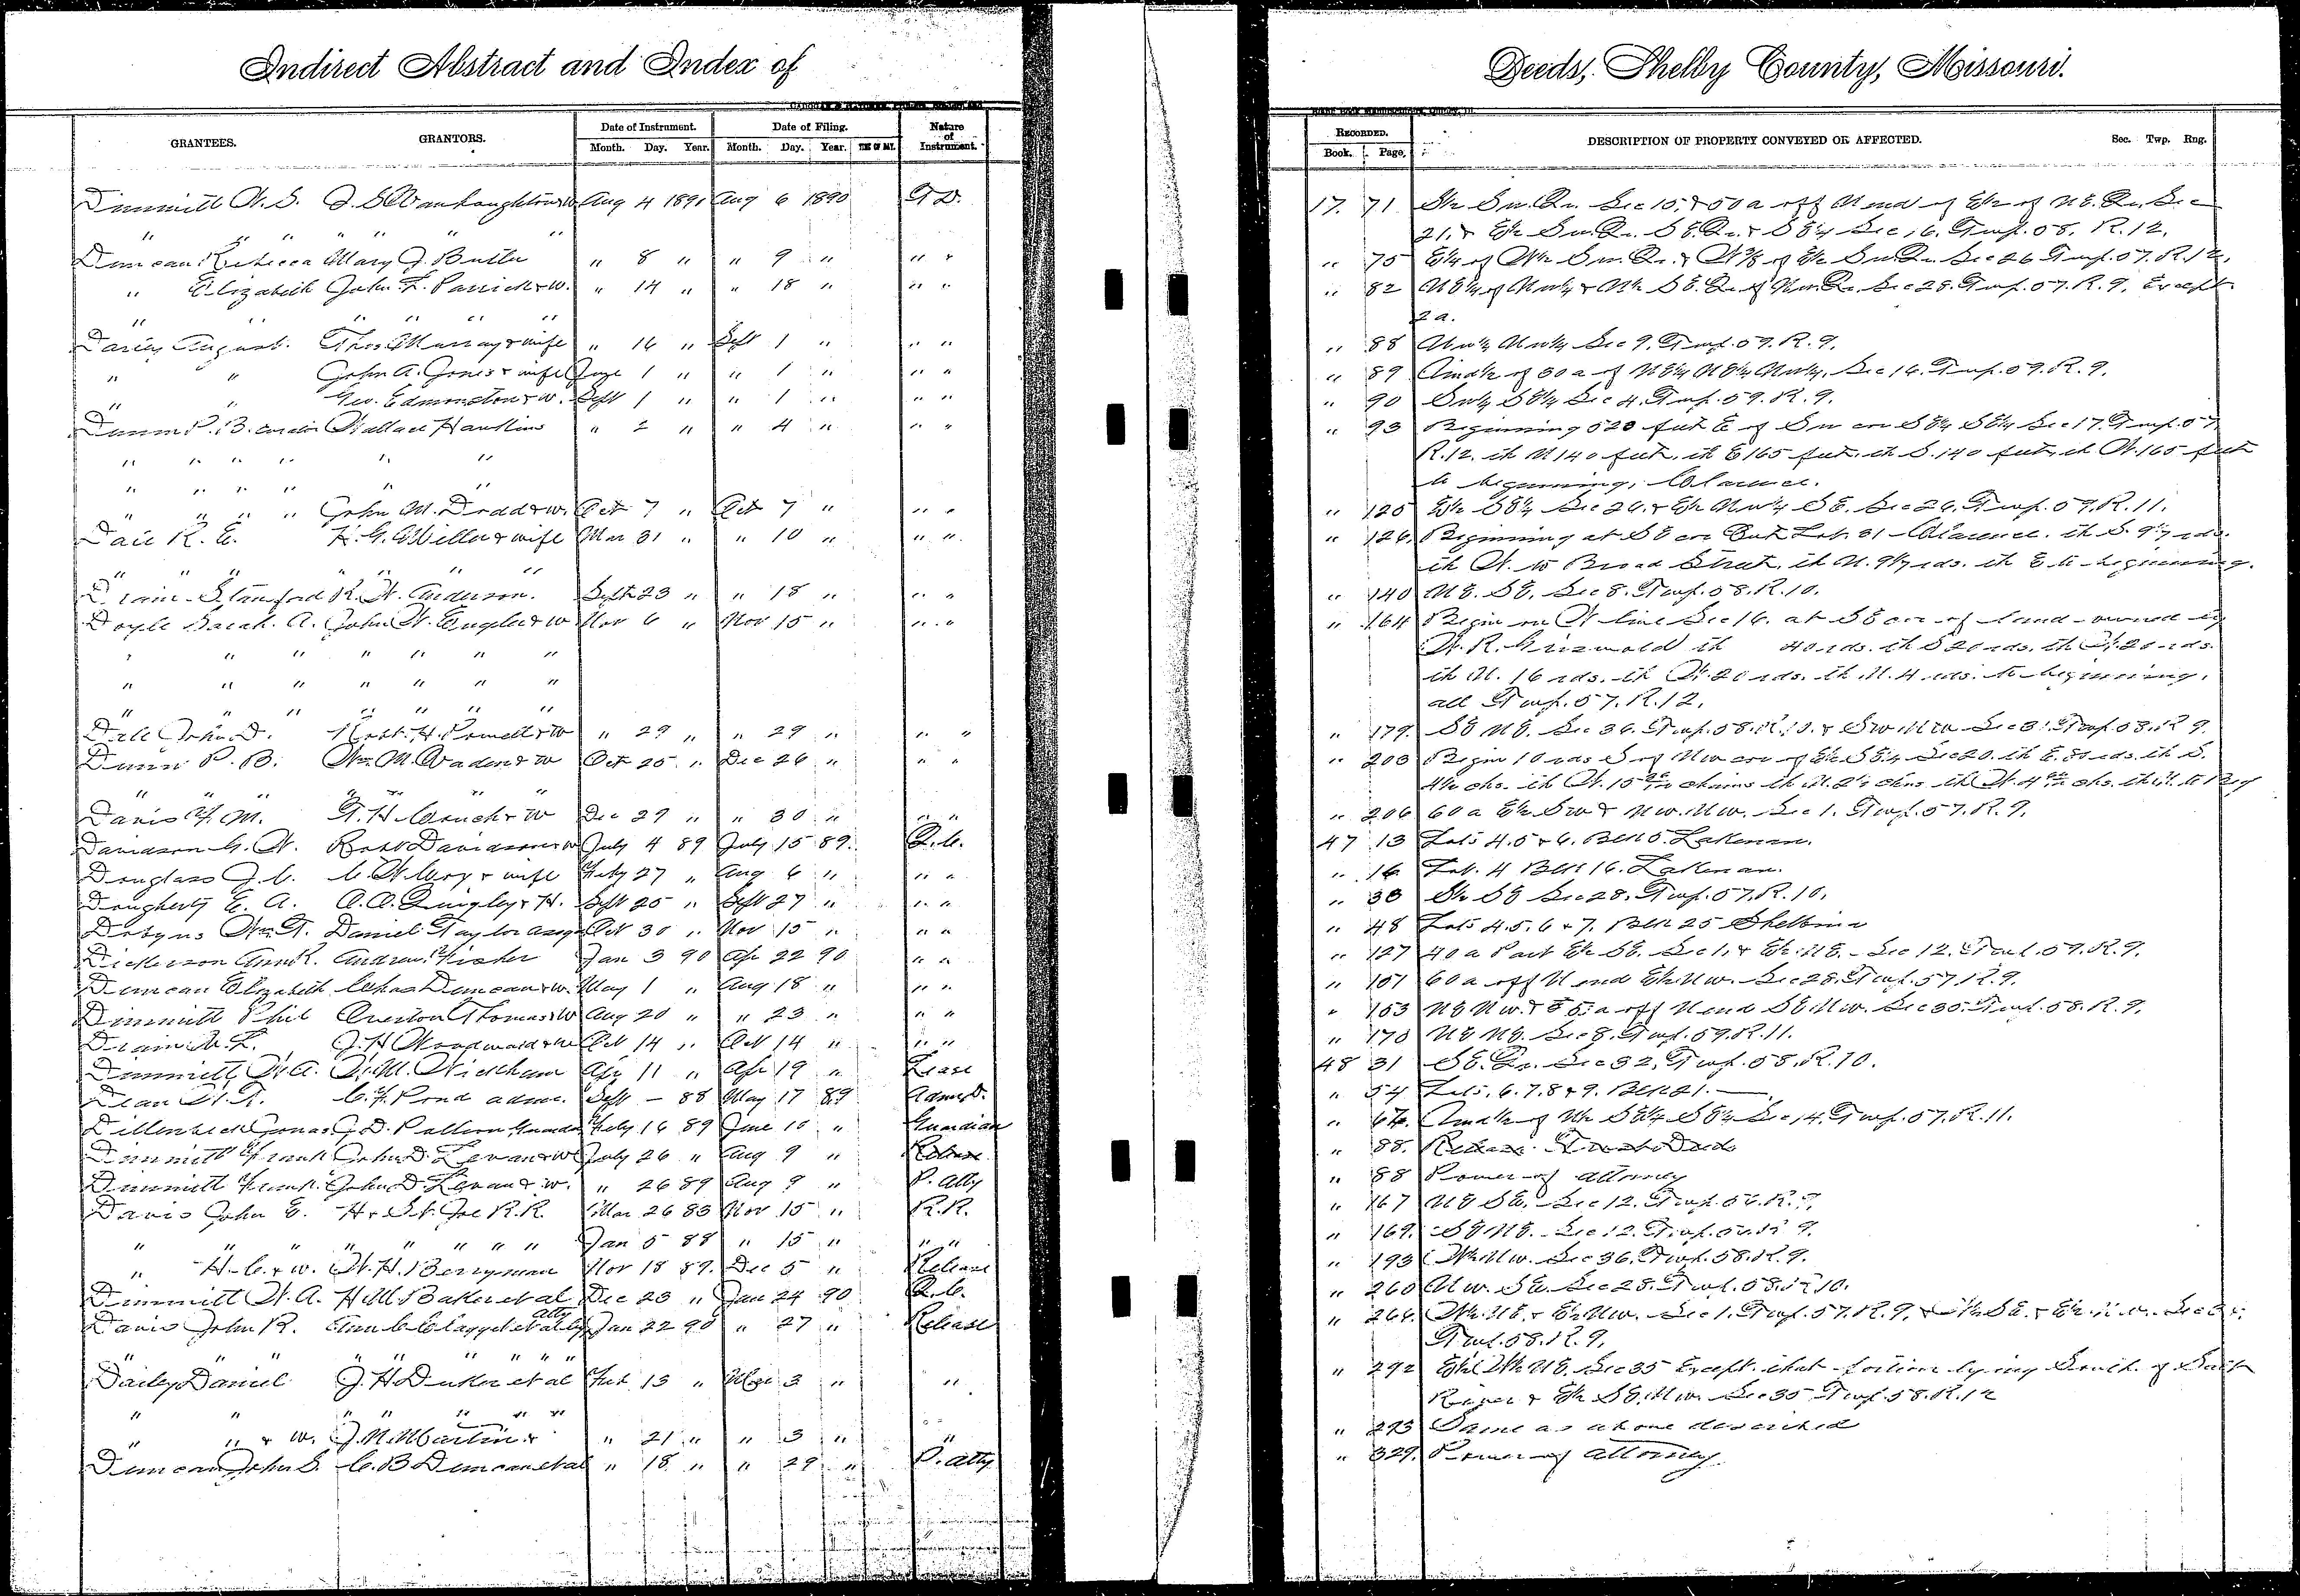 Indirect Abstract and Index of
Deeds, Shelby County, Missouri.
GRANTEES. GRANTORS. Date of Instrument. Date of Filing. Nature of Instrument.
Month. Day. Year. Month. Day. Year.
RECORDED. DESCRIPTION OF PROPERTY CONVEYED OR AFFECTED. Sec. Twp. Rng.
Book. Page.
Dimmitt W. S. Aug 4 Aug 6 1890 T D. 17. 71 Sec 10, & 50 a off N end of E½ of N E. Qr. Sec
" " " " " " 21. & E½ Sw. Qr. S E. Qr. & S E¼ Sec 16. Twp. 58. R. 12.
Duncan Rebecca Mary J. Butler " 8 " " 9 " " " " 75 Sw. Qr. Sec 26 Twp. 57. R. 12.
" Elizabeth John " 14 " " 18 " " " " 82 Sec 28. Twp. 57. R. 9. Except
" " " " " " 2 a.
August. Thos. Murray & wife " 16 " Sept 1 " " " " 88 Nw¼ Nw¼ Sec 9. Twp. 59. R. 9.
" " John A. Jones & wife 1 " " 1 " " " " 89 of 30 a of N E¼ N E¼ Nw¼. Sec 16. Twp. 59. R. 9.
" " Geo. Edmonston & w. Sept 1 " " 1 " " " " 90 Sw¼ S E¼ Sec 4. Twp. 59. R. 9.
Dunn P. B. Wallace Hawkins " 2 " " 4 " " " " 93 Beginning 520 feet E of Sw cor S E¼ S E¼ Sec 17. Twp. 57
" " " " " " R. 12. th N 140 feet, th E 165 feet, th S. 140 feet, th W. 165 feet
" " " " " " to beginning, Clarence.
" " " " John M. Dodd & w. Oct 7 " Oct 7 " " " " 125 E½ S E¼ Sec 26. & E½ Nw¼ S E. Sec 26. Twp. 59. R. 11.
R. E. Miller & wife Mar 31 " " 10 " " " " 126. Beginning at S E cor Out Lot 31 Clarence. th S. rds.
" " " " " " th W. to Broad Street, th N. rds. th E to beginning.
Drain Stanford R. W. Anderson. Sept 23 " " 18 " " " " 140 N E. S E. Sec 8. Twp. 58. R. 10.
Doyle Sarah. A. John W. Engler & w Nov 6 " Nov 15 " " " " 164 Begin on W line Sec 16. at S E cor of land owned by
" " " " " " " W. R. Griswold th 40 rds. th S 20 rds. th W. 20 rds.
" " " " " " " th N. 16 rds. th W. 20 rds. th N. 4 rds. to beginning.
" " " " " " " all Twp. 57. R. 12.
Dale John D. Robt. H. Powell & w " 29 " " 29 " " " " 179. S E N E. Sec 36. Twp. 58. R. 10. & Sw Nw Sec 31 Twp. 58. R 9.
Dunn P. B. Wm. M. Vaden & w Oct 25 " Dec 26 " " " " 203 Begin 10 rds S of Nw cor of E½ S E¼ Sec 20. th E. 80 rds. th S.
" " " " " " 4½ chs. th W. 15 chains th N. 2½ chns th W. 4 chs. th N. to Beg
Davis F. M. T. H. Couch & w Dec 29 " " 30 " " " " 206 60 a E½ Sw & Nw. Nw. Sec 1. Twp. 57. R. 9.
Davidson G. W. Robt Davidson & w July 4 89 July 15 89. Q. C. 47 13 Lots 4. 5 & 6. Blk 5. Lakenan.
Douglass J. C. & wife July 27 " Aug 6 " " " " 16 Lot. 4 Blk 16. Lakenan.
Dougherty E. A. A. A. Quigley & H. Sept 25 " Sept 27 " " " " 38 S½ S E Sec 28. Twp. 57. R. 10.
Dobyns Wm. T. Daniel Taylor assgn Oct 30 " Nov 15 " " " " 48 Lots 4. 5. 6 & 7. Blk 25 Shelbina
Dickerson Ann R. Andrew Fisher Jan 3 90 Apr 22 90 " " " 127 40 a Part E½ S E. Sec 1. & E½ N E. Sec 12. Twp. 59. R. 9.
Duncan Elizabeth Chas Duncan & w. May 1 " Aug 18 " " " " 151 60 a off N end E½ Nw. Sec 28. Twp. 57. R. 9.
Dimmitt Phil Overton Thomas & w Aug 20 " " 23 " " " " 153 N E Nw. & 5. a off N end S E Nw. Sec 35. Twp. 58. R. 9.
Drain J. H Woodward & w Oct 14 " Oct 14 " " " " 170 N E N E. Sec 8. Twp. 59. R. 11.
Dimmitt W. A. W. M. Wickham Apr 11 " Apr 19 " Lease 48 31 S E. Qr. Sec 32. Twp. 58. R. 10.
Dean C. F. Pond admr. Sept — 88 May 17 89 Admr D. " 54 Lots. 6. 7. 8 & 9. Blk 21.
Jonas J. D. Patton Guardn July 16 89 June 10 " Guardian " S E¼ S E¼ Sec 14. Twp. 57. R. 11.
Dimmitt Frank John D. Levan & w July 26 " Aug 9 " Release " 88. Release Trust Deed
Dimmitt Frank. John D. Levan & w. " 26 89 Aug 9 " P. Atty " 88 Power of Attorney
Davis John E. H & St. Joe R. R. Mar 26 83 Nov 15 " R. R. " 167 N E S E. Sec 12. Twp. R. 9.
" " " " " " " " Jan 5 88 " 15 " " " " 169. S E N E. Sec 12. Twp. 9.
" H. C. & w. W. H. Berryman Nov 18 89. Dec 5 " Release " 193 W½ Nw. Sec 36. Twp. 58. R. 9.
Dimmitt W. A. H. M. Baker et al Dec 23 " Jan 24 90 Q. C. " 260 Nw. S E. Sec 28. Twp. 58. R 10.
Davis John R. Ann C. Claggett et al by atty Jan 22 90 " 27 " Release " 264. W½ N E. & E½ Nw. Sec 1. Twp. 57. R. 9.
" " " " " " " Twp. 58. R. 9.
Daily Daniel J. H. Duker et al Feb 13 " Mar 3 " " " 292 N E. Sec 35 Except that portion lying South of Salt
" " " " " " " River & E½ S E. Nw. Sec 35 Twp. 58. R. 12
" " & w. J. M. Martin & " 21 " " 3 " " " 293 Same as above described
Duncan John S. C. B Duncan et al " 18 " " 29 " P. Atty " 329. Power of Attorney.